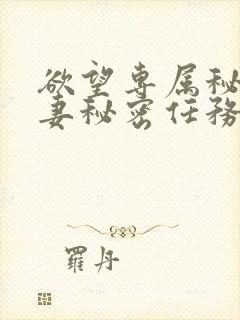 欲望专属秘
妻秘密任務
羅丹